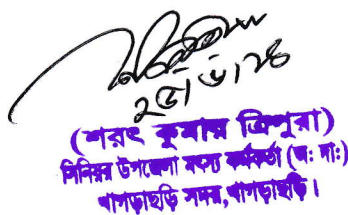 (শরৎ কুমার ত্রিপুরা)
সিনিয়র উপজেলা মৎস্য কর্মকর্তা (অঃ দাঃ)
খাগড়াছড়ি সদর, খাগড়াছড়ি।